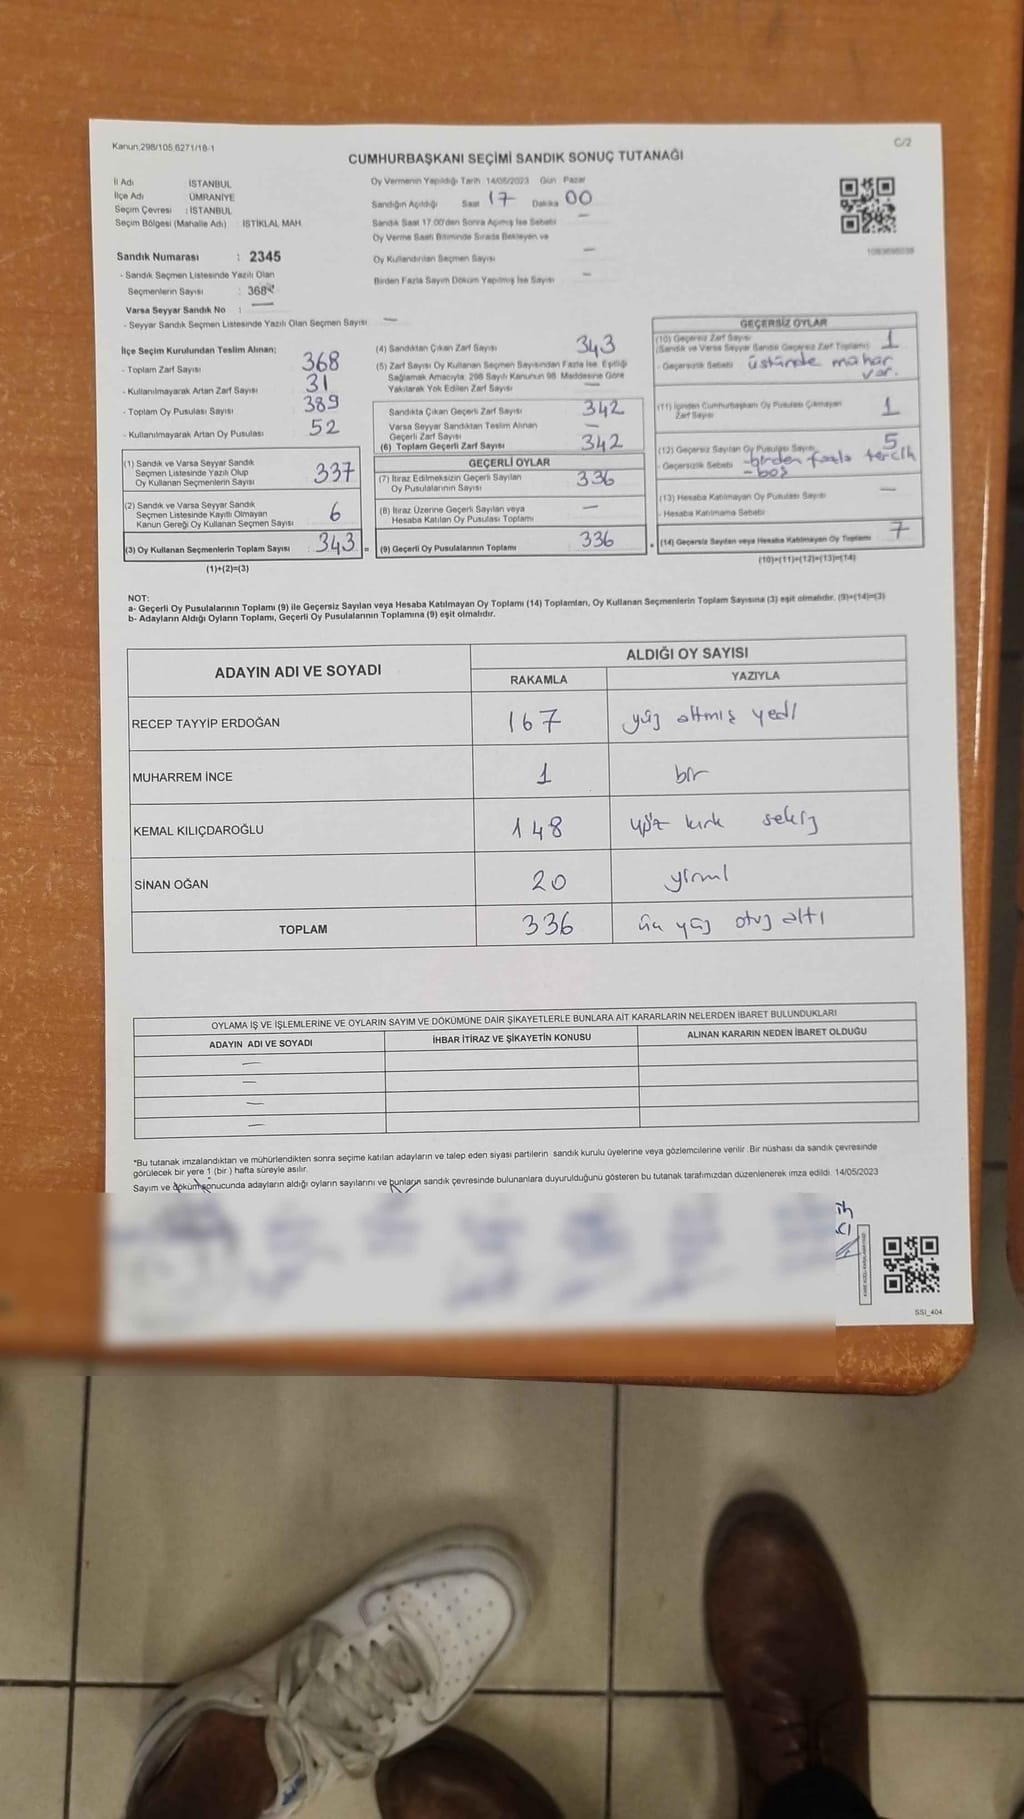 Kanun,298/105,6271/16-1
C/2
CUMHURBAŞKANI SEÇİMİ SANDIK SONUÇ TUTANAĞI
İl Adı İSTANBUL
İlçe Adı ÜMRANİYE
Seçim Çevresi : İSTANBUL
Seçim Bölgesi (Mahalle Adı) İSTİKLAL MAH.
Oy Vermenin Yapıldığı Tarih 14/05/2023 Gün Pazar
Sandığın Açıldığı Saat 17 Dakika 00
Sandık Saat 17.00'den Sonra Açılmış İse Sebebi —
Oy Verme Saati Bitiminde Sırada Bekleyen ve
Oy Kullandırılan Seçmen Sayısı —
Birden Fazla Sayım Döküm Yapılmış İse Sayısı —
Sandık Numarası : 2345
- Sandık Seçmen Listesinde Yazılı Olan
Seçmenlerin Sayısı : 368
Varsa Seyyar Sandık No : —
- Seyyar Sandık Seçmen Listesinde Yazılı Olan Seçmen Sayısı —
İlçe Seçim Kurulundan Teslim Alınan;
- Toplam Zarf Sayısı 368
- Kullanılmayarak Artan Zarf Sayısı 31
- Toplam Oy Pusulası Sayısı 389
- Kullanılmayarak Artan Oy Pusulası 52
(1) Sandık ve Varsa Seyyar Sandık
Seçmen Listesinde Yazılı Olup
Oy Kullanan Seçmenlerin Sayısı 337
(2) Sandık ve Varsa Seyyar Sandık
Seçmen Listesinde Kayıtlı Olmayan
Kanun Gereği Oy Kullanan Seçmen Sayısı 6
(3) Oy Kullanan Seçmenlerin Toplam Sayısı 343 =
(1)+(2)=(3)
(4) Sandıktan Çıkan Zarf Sayısı 343
(5) Zarf Sayısı Oy Kullanan Seçmen Sayısından Fazla İse, Eşitliği
Sağlamak Amacıyla; 298 Sayılı Kanunun 98. Maddesine Göre
Yakılarak Yok Edilen Zarf Sayısı —
Sandıkta Çıkan Geçerli Zarf Sayısı 342
Varsa Seyyar Sandıktan Teslim Alınan
Geçerli Zarf Sayısı —
(6) Toplam Geçerli Zarf Sayısı 342
GEÇERLİ OYLAR
(7) İtiraz Edilmeksizin Geçerli Sayılan
Oy Pusulalarının Sayısı 336
(8) İtiraz Üzerine Geçerli Sayılan veya
Hesaba Katılan Oy Pusulası Toplamı —
(9) Geçerli Oy Pusulalarının Toplamı 336
GEÇERSİZ OYLAR
(10) Geçersiz Zarf Sayısı 1
(Sandık ve Varsa Seyyar Sandık Geçersiz Zarf Toplamı)
- Geçersizlik Sebebi üstünde mühür
var.
(11) İçinden Cumhurbaşkanı Oy Pusulası Çıkmayan
Zarf Sayısı 1
(12) Geçersiz Sayılan Oy Pusulası Sayısı 5
- Geçersizlik Sebebi -birden fazla tercih
-boş
(13) Hesaba Katılmayan Oy Pusulası Sayısı —
- Hesaba Katılmama Sebebi
+ (14) Geçersiz Sayılan veya Hesaba Katılmayan Oy Toplamı 7
(10)+(11)+(12)+(13)=(14)
NOT:
a- Geçerli Oy Pusulalarının Toplamı (9) ile Geçersiz Sayılan veya Hesaba Katılmayan Oy Toplamı (14) Toplamları, Oy Kullanan Seçmenlerin Toplam Sayısına (3) eşit olmalıdır. (9)+(14)=(3)
b- Adayların Aldığı Oyların Toplamı, Geçerli Oy Pusulalarının Toplamına (9) eşit olmalıdır.
ADAYIN ADI VE SOYADI
ALDIĞI OY SAYISI
RAKAMLA YAZIYLA
RECEP TAYYİP ERDOĞAN 167 yüz altmış yedi
MUHARREM İNCE 1 bir
KEMAL KILIÇDAROĞLU 148 yüz kırk sekiz
SİNAN OĞAN 20 yirmi
TOPLAM 336 üç yüz otuz altı
OYLAMA İŞ VE İŞLEMLERİNE VE OYLARIN SAYIM VE DÖKÜMÜNE DAİR ŞİKAYETLERLE BUNLARA AİT KARARLARIN NELERDEN İBARET BULUNDUKLARI
ADAYIN ADI VE SOYADI İHBAR İTİRAZ VE ŞİKAYETİN KONUSU ALINAN KARARIN NEDEN İBARET OLDUĞU
—
—
—
—
*Bu tutanak imzalandıktan ve mühürlendikten sonra seçime katılan adayların ve talep eden siyasi partilerin sandık kurulu üyelerine veya gözlemcilerine verilir .Bir nüshası da sandık çevresinde
görülecek bir yere 1 (bir ) hafta süreyle asılır.
Sayım ve döküm sonucunda adayların aldığı oyların sayılarını ve bunların sandık çevresinde bulunanlara duyurulduğunu gösteren bu tutanak tarafımızdan düzenlenerek imza edildi. 14/05/2023
SSI_404